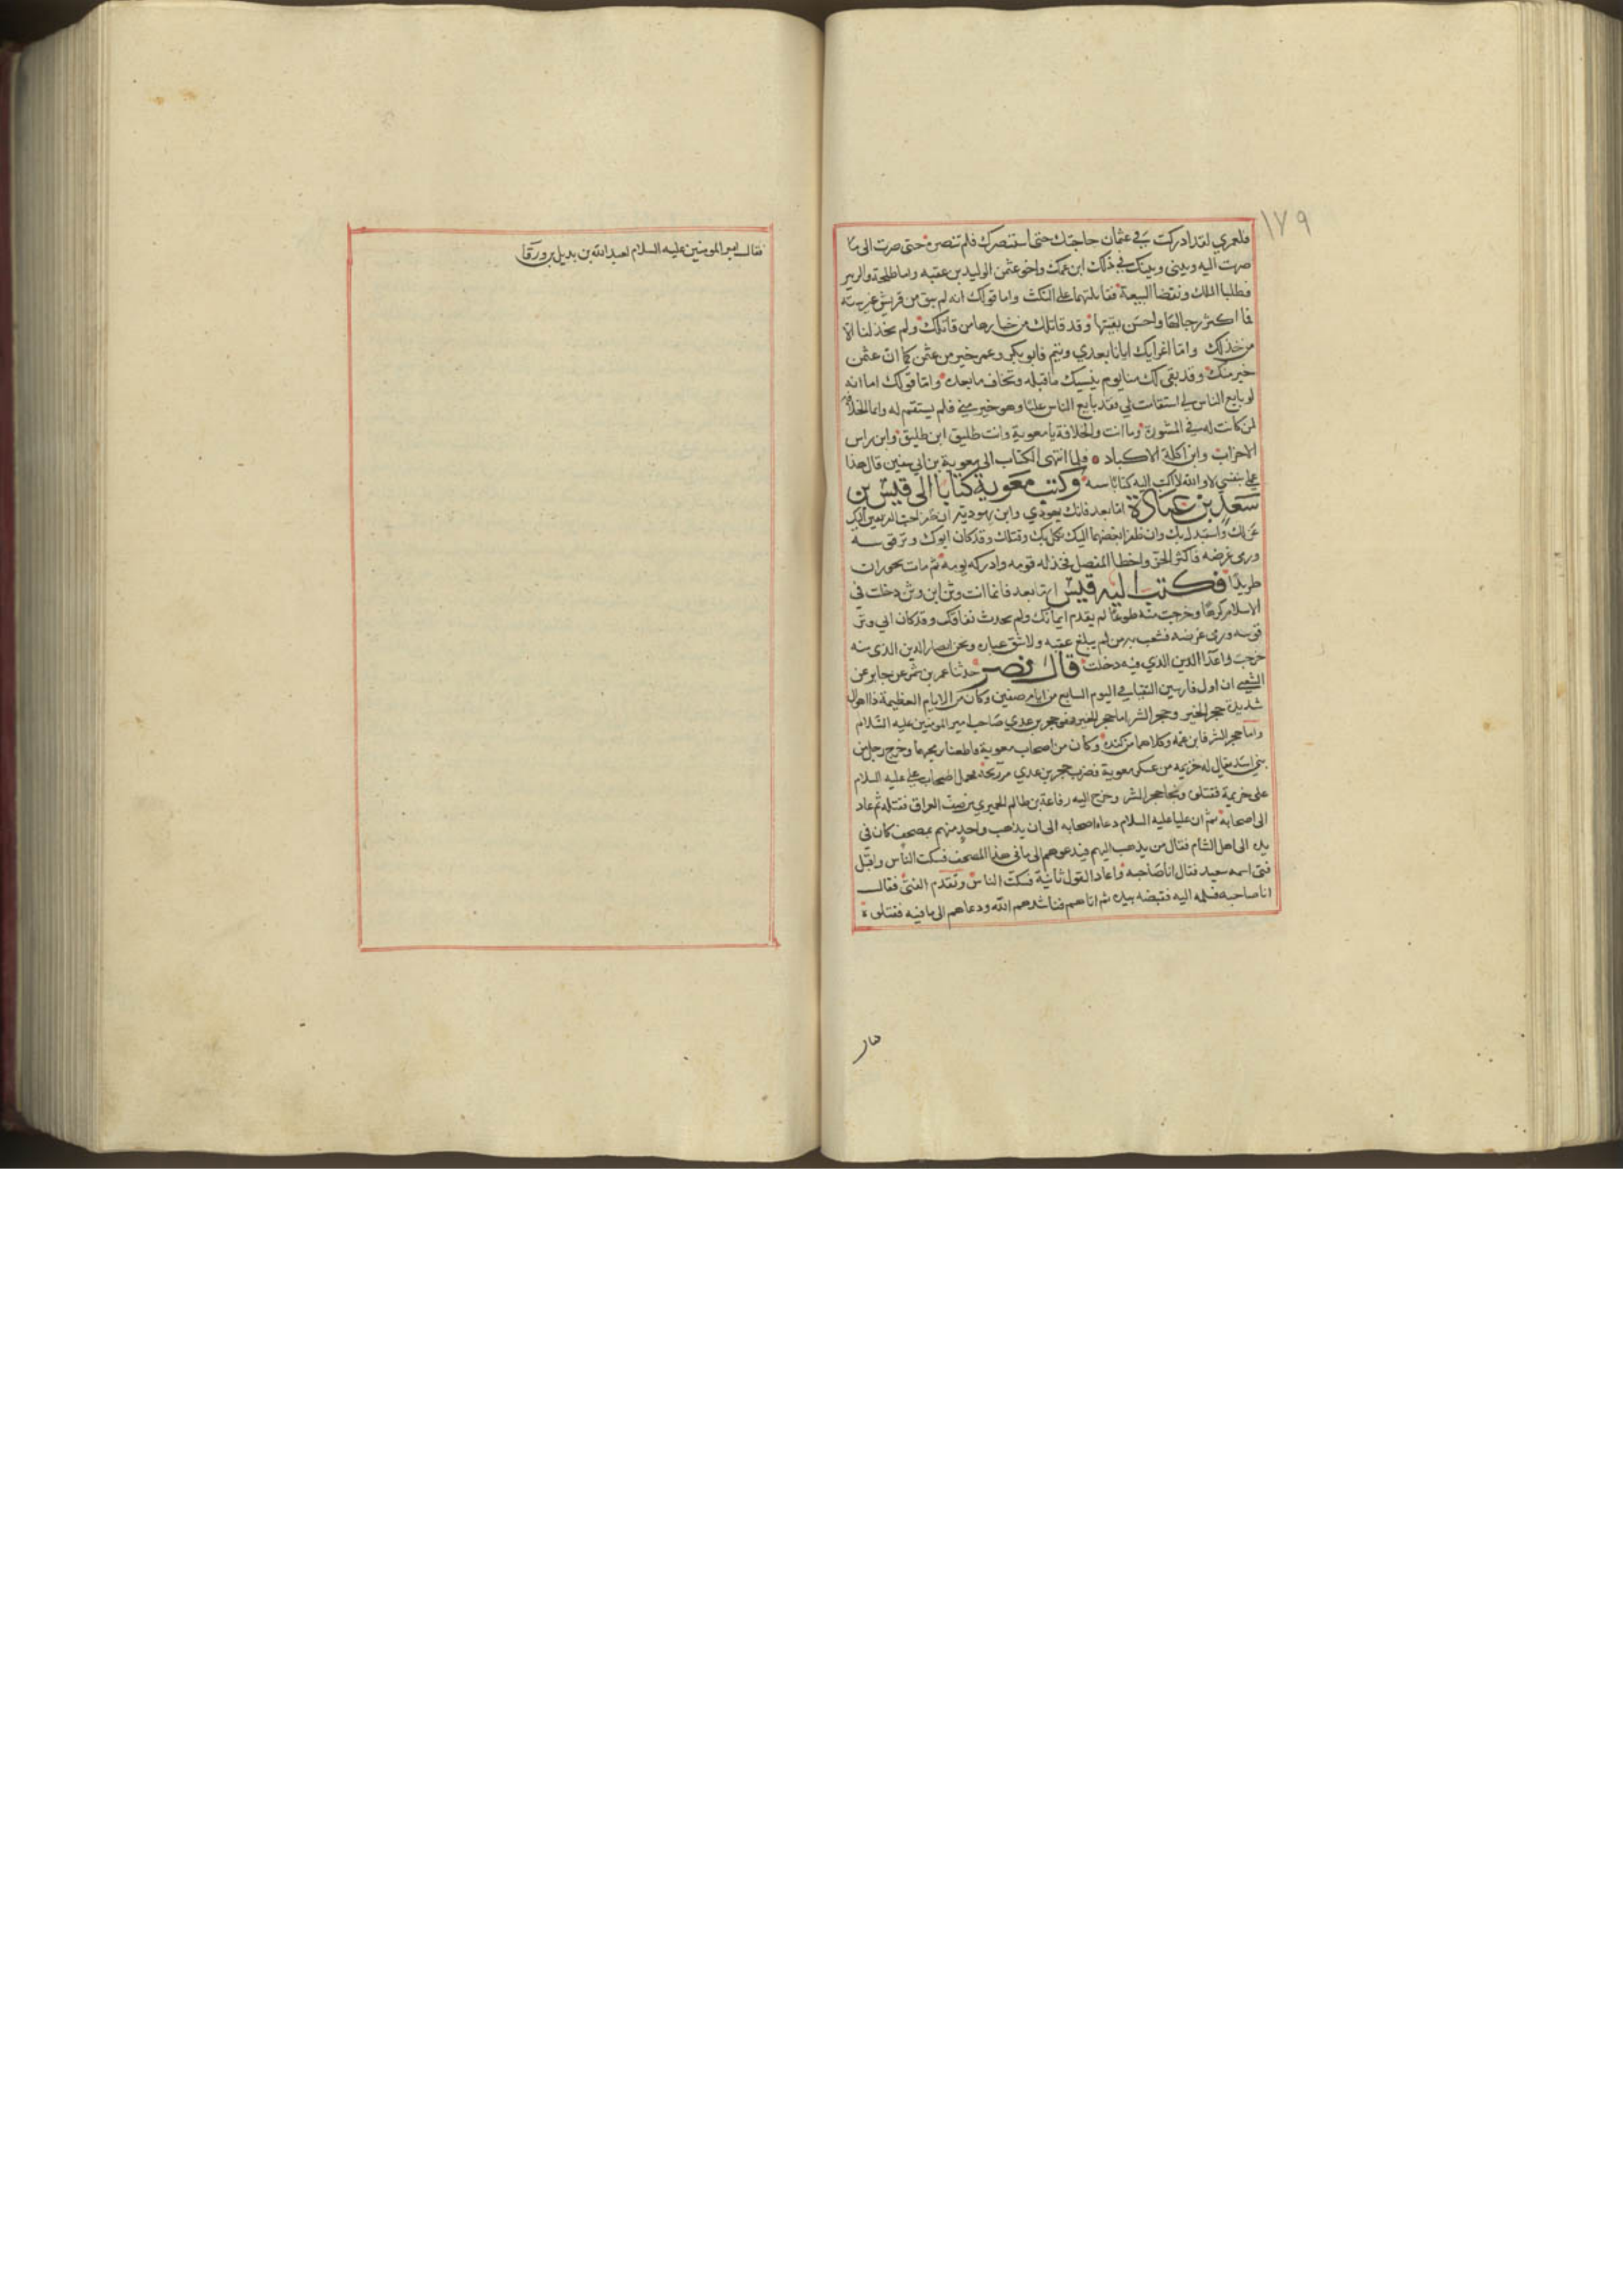 ١٧٩
فلعمري لقد ادركت في عثمان حاجتك حتى استنصرك فلم تنصره حتى صرت الى ما
صرت اليه وبيني وبينك في ذلك ابن عمك واخو عثمن الوليد بن عقبه واما طلحة والزبير
فطلبا الملك ونقضا البيعة فقاتلتهما على النكث واما قولك انه لم يبق من قريش غير ستة
فما اكثر رجالها واحسن بقيتها وقد قاتلك من خيارها من قاتلك ولم يخذلنا الا
من خذلك واما اغرايك ايانا بعدي وتيم فابو بكر وعمر خير من عثمن كما ان عثمن
خير منك وقد بقى لك منا يوم ينسيك ما قبله وتخاف ما بعده واما قولك اما انه
لو بايع الناس لي استقامت لي فقد بايع الناس عليا وهو خير مني فلم يستقم له وانما الخلافة
لمن كانت له في المشورة وما انت والخلافة يا معوية وانت طليق ابن طليق وابن راس
الاحزاب وابن اكلة الاكباد فلما انتهى الكتاب الى معوية بن ابي سفين قال هذا
على نفسي لا والله لا اكتب اليه كتابا سنة وكتب معوية كتابا الى قيس بن
سعد بن عبادة اما بعد فانك يهودي وابن يهودية ان ظفر احب الفريقين اليك
عزلك واستبدل بك وان ظفر ابغضهما اليك نكل بك وقتلك وقد كان ابوك وتر قوسه
ورمى غرضه فاكثر الحز واخطا المفصل فخذله قومه وادركه يومه ثم مات بحوران
طريدا فكتب اليه قيس اما بعد فانما انت وثن ابن وثن دخلت في
الاسلام كرها وخرجت منه طوعا لم يقدم ايمانك ولم يحدث نفاقك وقد كان ابي وتر
قوسه ورمى غرضه فشعب به من لم يبلغ عقبه ولا شق غباره ونحن انصار الدين الذي منه
خرجت واعداء الدين الذي فيه دخلت قال نصر حدثنا عمر بن شمر عن جابر عن
الشعبي ان اول فارسين التقيا في اليوم السابع من ايام صفين وكان من الايام العظيمة ذا اهوال
شديدة حجر الخير وحجر الشر اما حجر الخير فهو حجر بن عدي صاحب امير المومنين عليه السلام
واما حجر الشر فابن عمه وكلاهما من كندة وكان من اصحاب معوية فاطعنا برمحيهما وخرج رجل من
بني اسد يقال له خزيمه من عسكر معوية فضرب حجر بن عدي برمحه فحمل اصحاب علي عليه السلام
على خزيمة فقتلوه ونجا حجر الشر وخرج اليه رفاعة بن ظالم الحميري من صف العراق فقتله ثم عاد
الى اصحابه ثم ان عليا عليه السلام دعا اصحابه الى ان يذهب واحد منهم بمصحف كان في
يده الى اهل الشام فقال من يذهب اليهم فيدعوهم الى ما في هذا المصحف فسكت الناس واقبل
فتى اسمه سعيد فقال انا صاحبه فاعاد القول ثانية فسكت الناس وتقدم الفتى فقال
انا صاحبه فسلمه اليه فقبضه بيده ثم اتاهم فناشدهم الله ودعاهم الى ما فيه فقتلوه
فقال
فقال امير المومنين عليه السلام لعبد الله بن بديل بن ورقا